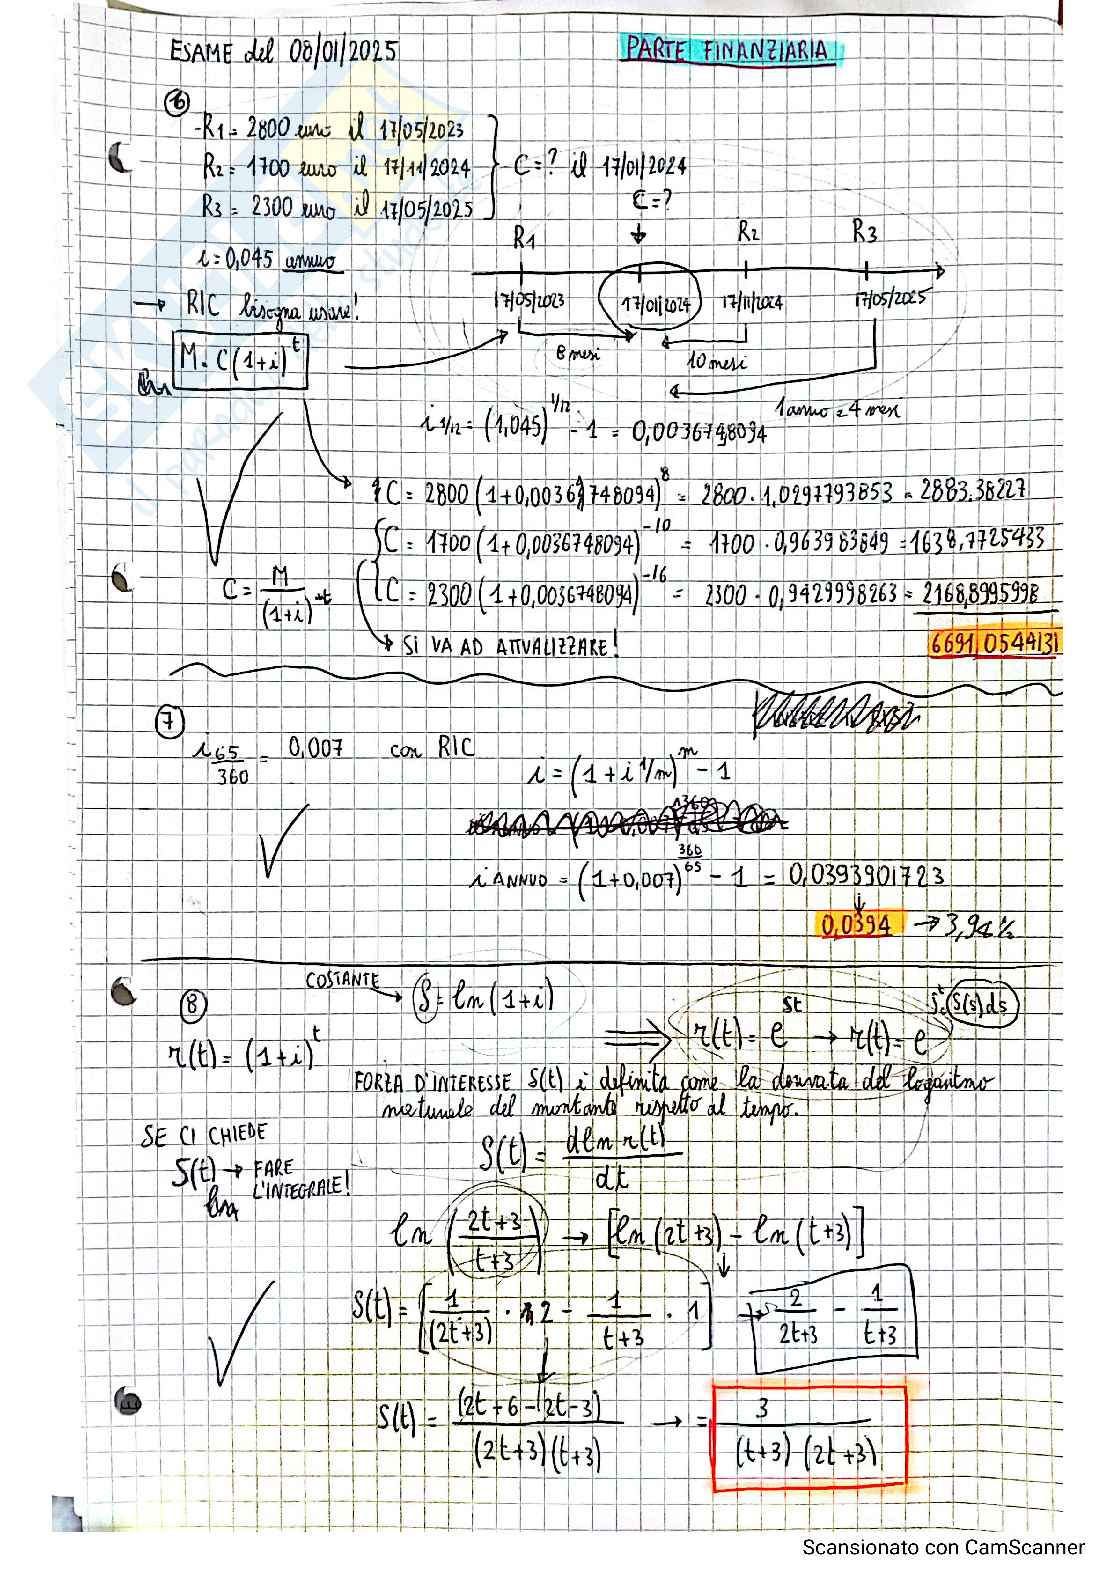 ESAME del 08/01/2025
PARTE FINANZIARIA
6
-R1 = 2800 euro il 17/05/2023
R2 = 1700 euro il 17/11/2024
R3 = 2300 euro il 17/05/2025
C=? il 17/01/2024
C=?
R1 R2 R3
i=0,045 annuo
17/05/2023 17/01/2024 17/11/2024 17/05/2025
→ RIC bisogna usare!
8 mesi
10 mesi
M = C(1+i)^t
1 anno e 4 mesi
i 1/12 = (1,045)^1/12 - 1 = 0,0036748094
C = 2800 (1+0,0036748094)^8 = 2800 · 1,0297793853 = 2883,38227
C = 1700 (1+0,0036748094)^-10 = 1700 · 0,963983849 = 1638,7725433
C = M/(1+i)^-t
C = 2300 (1+0,0036748094)^-16 = 2300 · 0,9429998263 = 2168,8995998
→ SI VA AD ATTUALIZZARE!
6691,0544131
7
i 65/360 = 0,007 con RIC
i = (1 + i 1/m)^m - 1
i ANNUO = (1+0,007)^360/65 - 1 = 0,0393901723
0,0394 → 3,94%
8
COSTANTE → δ = ln (1+i)
r(t) = (1+i)^t
⇒ r(t) = e^δt → r(t) = e^∫₀^t δ(s)ds
FORZA D'INTERESSE δ(t) è definita come la derivata del logaritmo
naturale del montante rispetto al tempo.
SE CI CHIEDE
δ(t) → FARE
L'INTEGRALE!
δ(t) = dln r(t)/dt
ln (2t+3/t+3) → [ln (2t+3) - ln (t+3)]
δ(t) = [1/(2t+3) · 2 - 1/t+3 · 1] → 2/2t+3 - 1/t+3
δ(t) = (2t+6-2t-3)/(2t+3)(t+3) → = 3/(t+3)(2t+3)
Scansionato con CamScanner